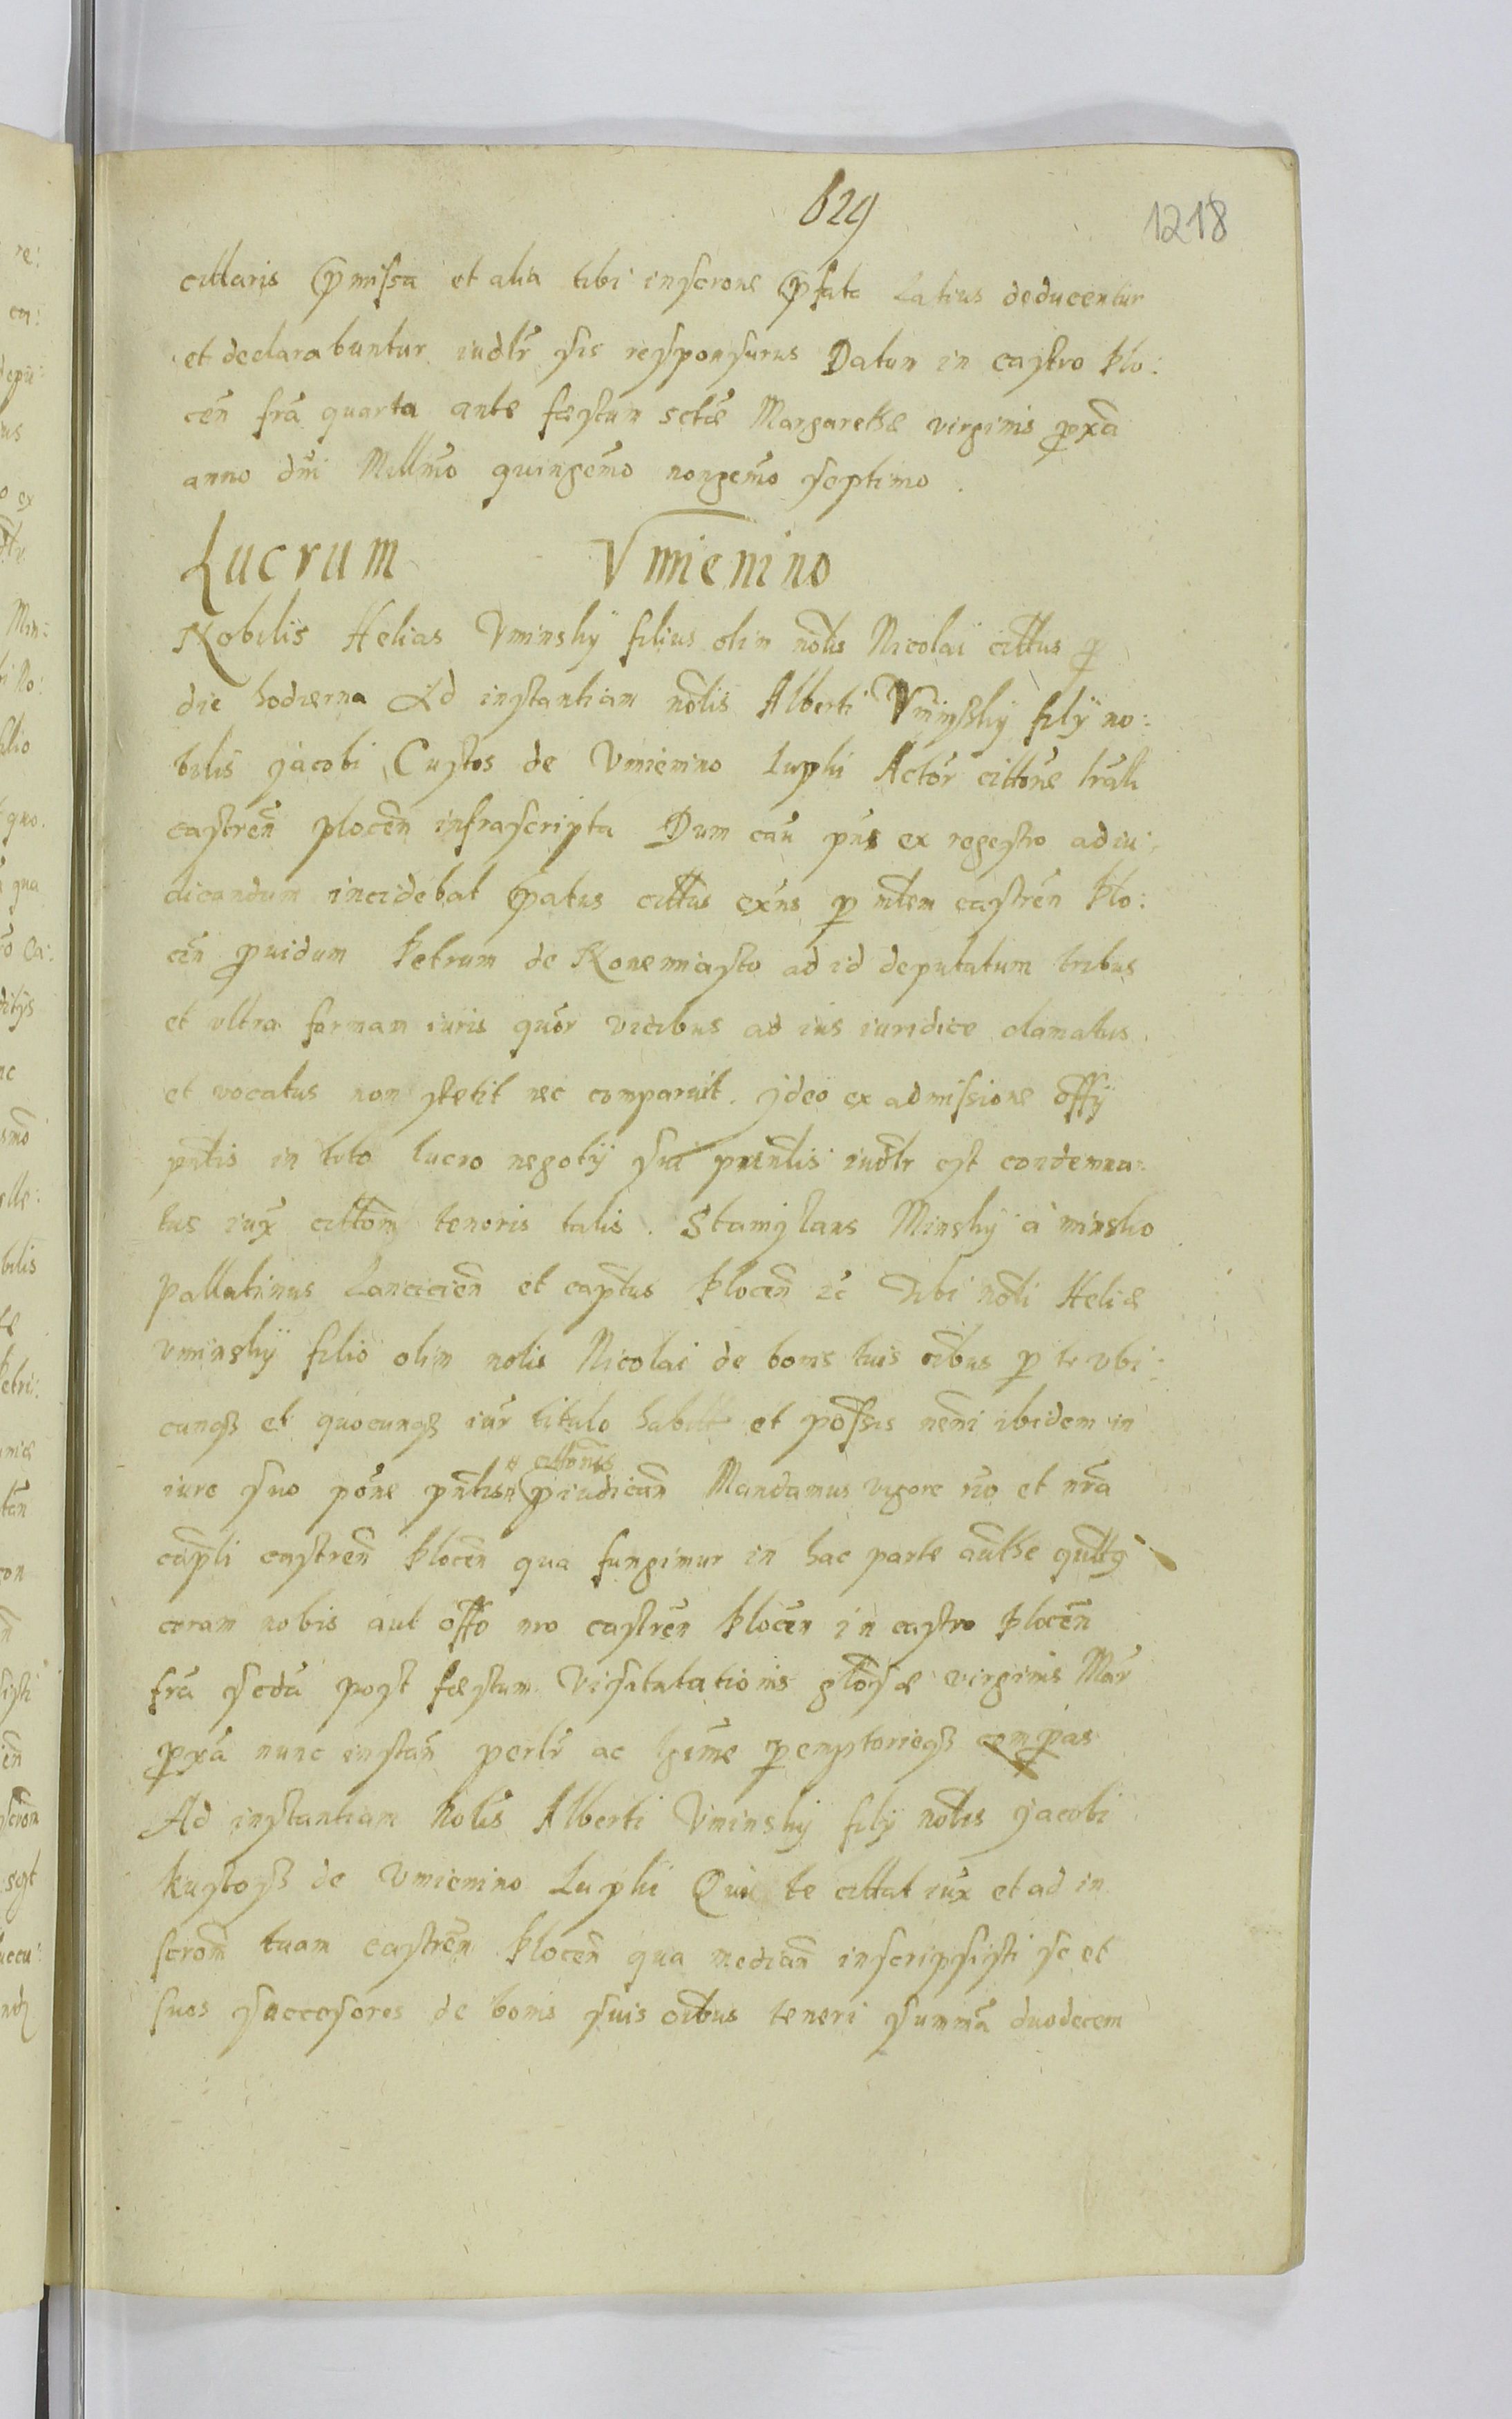 629
1218
cittaris p̃missa et alia tibi inscrone p̃fata Latius deducentur
et declarabuntur iudlr̃ sis responsurus Datum in castro Plo:
ceñ fra quarta ante fæstum sctæ Margarethæ virginis p̱xã
anno dni Millmo quingemo nongemo septimo.
Lucrum Vmienino
Nobilis Helias Vminsky filius olim nolis Nicolai cittus p
die hodierna Ad instantiam nolis Alberti Vminsky filÿ no:
bilis Jacobi Custos de Vmienino Luphi Actor cittone trãli
castreñ ploceñ infrascripta Dum cau pñs ex regestro ad iu:
dicandum incidebat p̃fatus cittus exñs p mlem castreñ Plo:
ceñ p̱uidum Petrum de Nonemiasto ad id deputatum tribus
et vltra formam iuris quor vicibus ad ius iuridice clamatus
et vocatus non stetit nec comparuit. Jdeo ex admissione offÿ
pñtis in toto lucro negotÿ sui prinlis iudlr est condemna:
tus iux cittom tenoris talis. Stanislaus Minsky à minsko
Pallatinus Lancicieñ et captus Ploceñ ec̃ Tibi noli Heliæ
vminskÿ filio olim nolis Nicolai de bonis tuis oibus p te vbi:
cunqȝ et quocunqȝ iur titulo habitt et possis nemi ibidem in
iure suo pone pñtis * cittonis p̃iudicañ Mandamus vigore rio et nrã
capli castreñ Ploceñ qua fungimur in hac parte authe qttg
coram nobis aut offo nro castreñ Ploceñ in castro Ploceñ
frã scdã post fæstum Visitatationis glosæ virginis Mar
p̱xã nunc instañ perlr̃ ac lgime p̱emptorieqȝ compas
Ad instantiam Nolis Alberti Vminsky filÿ nolis Jacobi
Kustosȝ de Vmienino Luphi Qui te cittat iux et ad in
scrom tuam castreñ Ploceñ qua medieañ inscripsisti se et
suos successores de bonis suis oibus teneri summã duodecem